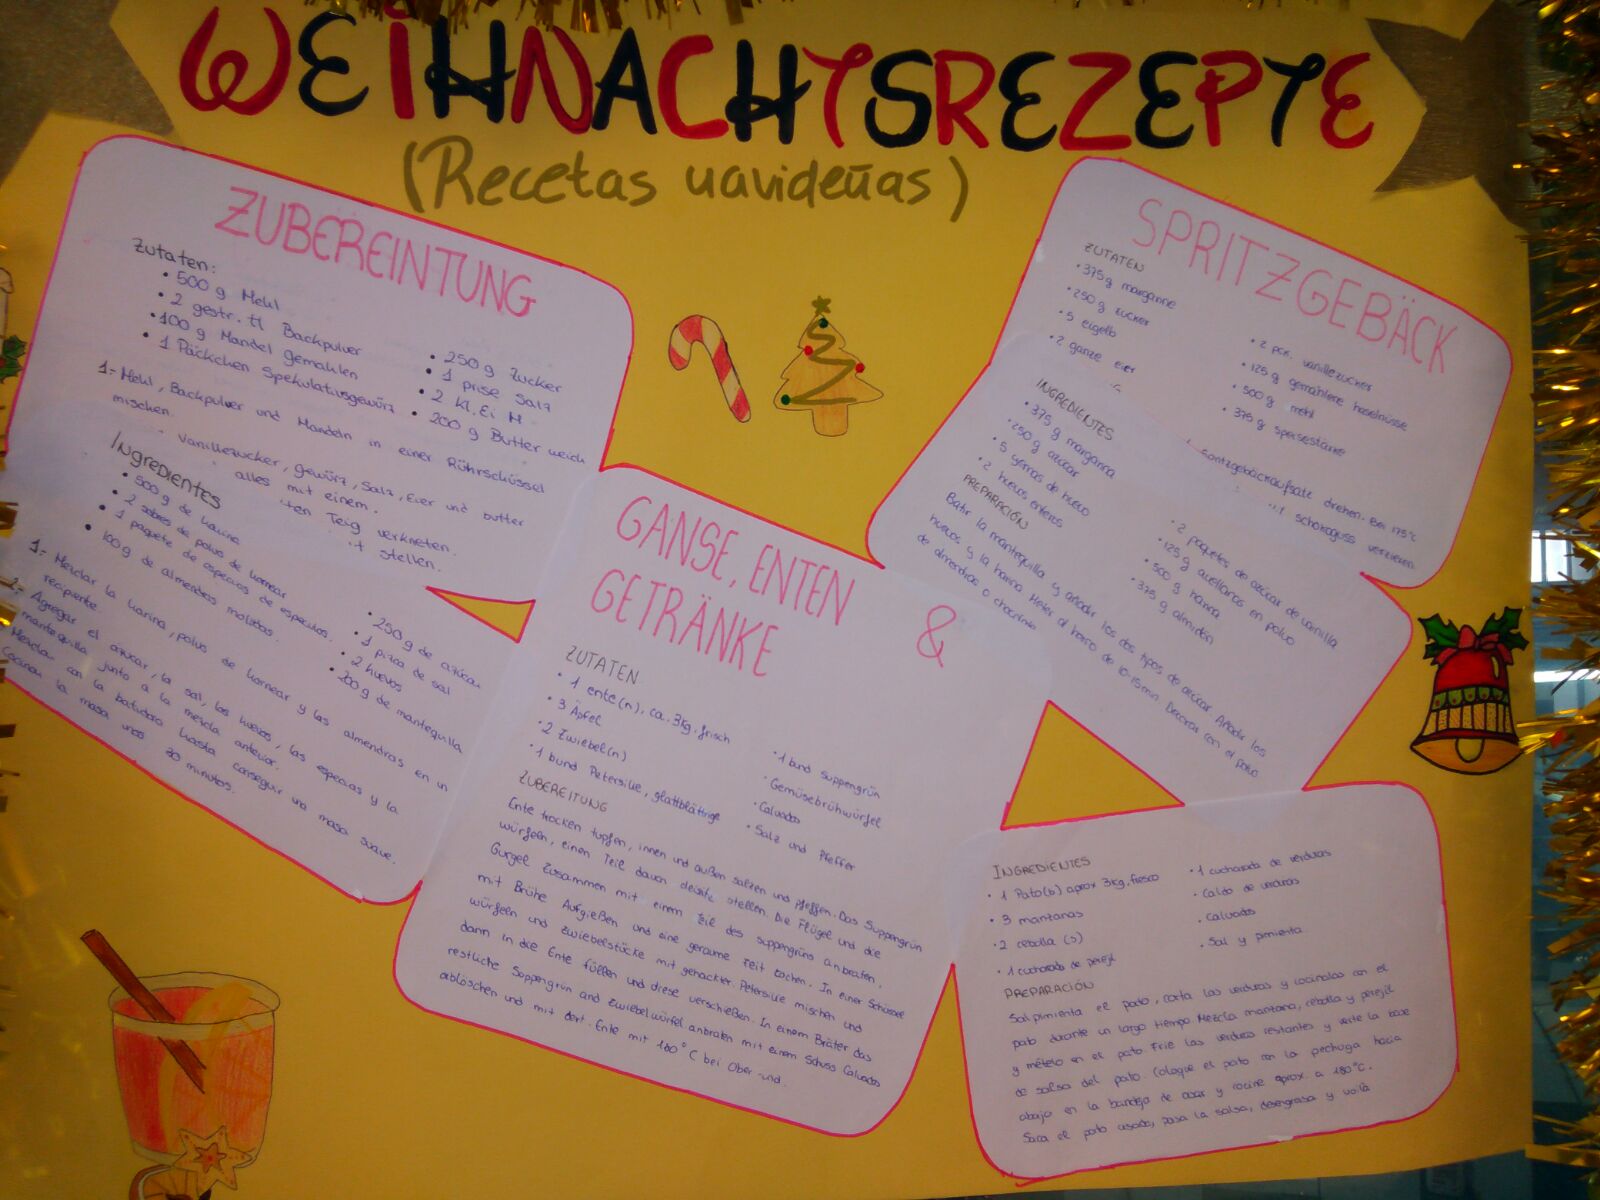 WEIHNACHTSREZEPTE
(Recetas navideñas)
ZUBEREINTUNG
Zutaten:
• 500 g Mehl
• 2 gestr. tl Backpulver
• 100 g Mandel gemahlen
• 1 Päckchen Spekulatiusgewürz
• 250 g Zucker
• 1 prise Salz
• 2 Kl. Ei M
• 200 g Butter weich
1.- Mehl, Backpulver und Mandeln in einer Rührschüssel
mischen.
Vanillezucker, gewürz, Salz, Eier und butter
alles mit einem
ten Teig verkneten.
t stellen.
Ingredientes
• 500 g de harina
• 2 sobres de polvo de hornear
• 1 paquete de especias de especulos.
• 100 g de almendras molidas.
• 250 g de azúcar
• 1 pizca de sal
• 2 huevos
• 200 g de mantequilla
1.- Mezclar la harina, polvo de hornear y las almendras en un
recipiente.
2.- Agregar el azucar, la sal, los huevos, las especias y la
mantequilla junto a la mezcla anterior.
Mezclar con la batidora hasta conseguir una masa suave.
Cocinar la masa unos 30 minutos.
GANSE, ENTEN &
GETRÄNKE
ZUTATEN
• 1 ente(n), ca. 3kg, frisch
• 3 Äpfel
• 2 Zwiebel(n)
• 1 bund Petersilie, glattblättrige
• 1 bund Suppengrün
• Gemüsebrühwürfel
• Calvados
• Salz und Pfeffer
ZUBEREITUNG
Ente trocken tupfen, innen und außen salzen und pfeffen. Das Suppengrün
würfeln, einen Teil davon beiseite stellen. Die Flügel und die
Gurgel zusammen mit einem Teil des suppengrüns anbraten,
mit Brühe Aufgießen und eine geraume Zeit kochen. In einer Schüssel
würfeln und zwiebelstücke mit gehackter Petersilie mischen und
dann in die Ente füllen und diese verschießen. In einem Bräter das
restliche Suppengrün and zwiebelwürfel anbraten mit einem Schuss Calvados
ablöschen und mit dort. Ente mit 160°C bei Ober-und.
SPRITZGEBÄCK
ZUTATEN
• 375g margarine
• 250g zucker
• 5 eigelb
• 2 ganze eier
• 2 pck. vanillezucker
• 125g gemahlene haselnüsse
• 500g mehl
• 375g speisestärke
spritzgebäckaufsatz drehen. Bei 175°C
schokoguss verzieren
INGREDIENTES
• 375g margarina
• 250g azúcar
• 5 yemas de huevo
• 2 huevos enteros
• 2 paquetes de azúcar de vainilla
• 125g avellanas en polvo
• 500g harina
• 375g almidón
PREPARACIÓN
Batir la mantequilla y añadir los dos tipos de azúcar. Añadir los
huevos y la harina. Meter al horno de 10-15 min. Decorar con el polvo
de almendras o chocolate
INGREDIENTES
• 1 Pato(s) aprox 3kg, fresco
• 3 manzanas
• 2 cebolla (s)
• 1 cucharada de perejil
• 1 cucharada de verduras
• Caldo de verduras
• Calvados
• Sal y pimienta
PREPARACIÓN
Salpimienta el pato, corta las verduras y cocínalas con el
pato durante un largo tiempo. Mezcla manzana, cebolla y perejil
y mételo en el pato. Fríe las verduras restantes y vierte la base
de salsa del pato. Coloque el pato con la pechuga hacia
abajo en la bandeja de asar y cocine aprox. a 180°C.
Saca el pato asado, pasa la salsa, desengrasa y voilà